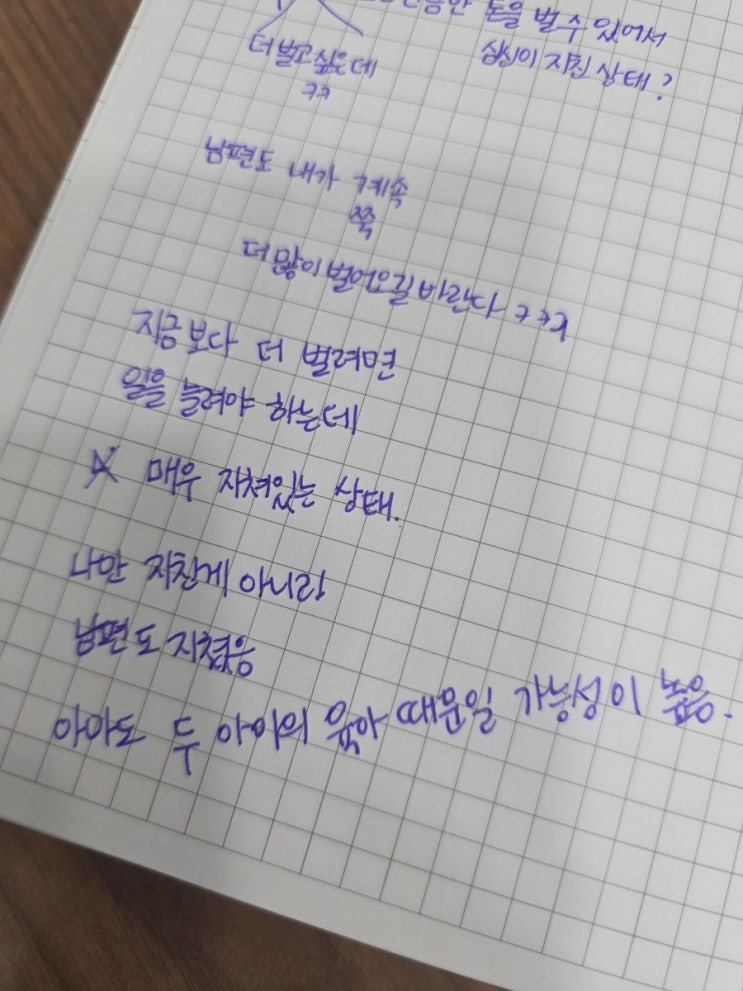 돈을 벌 수 있어서
심신이 지친 상태?
더 벌고 싶은데
ㅋㅋ
남편도 내가 계속
쭉
더 많이 벌어오길 바란다 ㅋㅋㅋ
지금보다 더 벌려면
일을 늘려야 하는데
매우 지쳐있는 상태.
나만 지친게 아니라
남편도 지쳤음
아마도 두 아이의 육아 때문일 가능성이 높음.